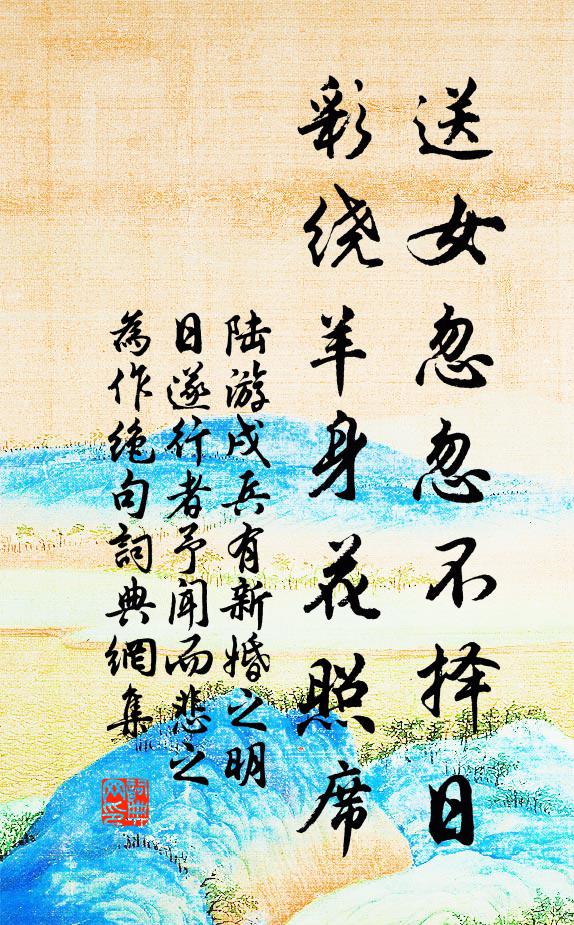 送女忽忽不择日
彩绕羊身花照席
陆游戍兵有新婚之明
日遂行者予闻而悲之
為作绝句詞典網集